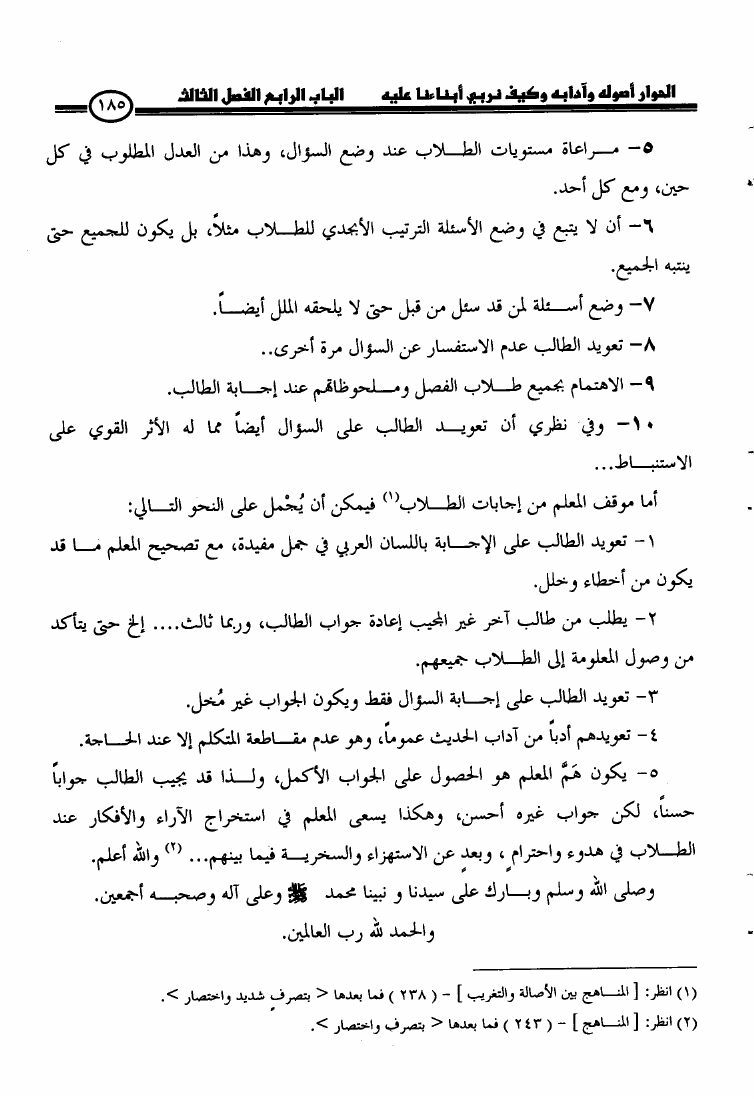 الحوار أصوله وآدابه وكيف نربي أبناءنا عليه الباب الرابع الفصل الثالث ١٨٥
٥- مراعاة مستويات الطلاب عند وضع السؤال، وهذا من العدل المطلوب في كل
حين، ومع كل أحد.
٦- أن لا يتبع في وضع الأسئلة الترتيب الأبجدي للطلاب مثلاً، بل يكون للجميع حتى
ينتبه الجميع.
٧- وضع أسئلة لمن قد سئل من قبل حتى لا يلحقه الملل أيضاً.
٨- تعويد الطالب عدم الاستفسار عن السؤال مرة أخرى..
٩- الاهتمام بجميع طلاب الفصل وملحوظاتهم عند إجابة الطالب.
١٠- وفي نظري أن تعويد الطالب على السؤال أيضاً مما له الأثر القوي على
الاستنباط...
أما موقف المعلم من إجابات الطلاب(١) فيمكن أن يُجْمل على النحو التالي:
١- تعويد الطالب على الإجابة باللسان العربي في جمل مفيدة، مع تصحيح المعلم ما قد
يكون من أخطاء وخلل.
٢- يطلب من طالب آخر غير المجيب إعادة جواب الطالب، وربما ثالث.... إلخ حتى يتأكد
من وصول المعلومة إلى الطلاب جميعهم.
٣- تعويد الطالب على إجابة السؤال فقط ويكون الجواب غير مُخل.
٤- تعويدهم أدباً من آداب الحديث عموماً، وهو عدم مقاطعة المتكلم إلا عند الحاجة.
٥- يكون هَمَّ المعلم هو الحصول على الجواب الأكمل، ولذا قد يجيب الطالب جواباً
حسناً، لكن جواب غيره أحسن، وهكذا يسعى المعلم في استخراج الآراء والأفكار عند
الطلاب في هدوء واحترامٍ، وبعدٍ عن الاستهزاء والسخرية فيما بينهم...(٢) والله أعلم.
وصلى الله وسلم وبارك على سيدنا و نبينا محمد ﷺ وعلى آله وصحبه أجمعين.
والحمد لله رب العالمين.
(١) انظر: [ المناهج بين الأصالة والتغريب ] - ( ٢٣٨ ) فما بعدها < بتصرفٍ شديد واختصار >.
(٢) انظر: [ المناهج ] - ( ٢٤٣ ) فما بعدها < بتصرف واختصار >.